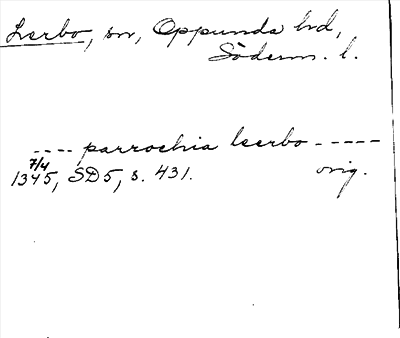 Lerbo, sn, Oppunda hd,
Söderm. l.
---- parrochia leerbo -----
7/4
1345, SD5, s. 431. orig.